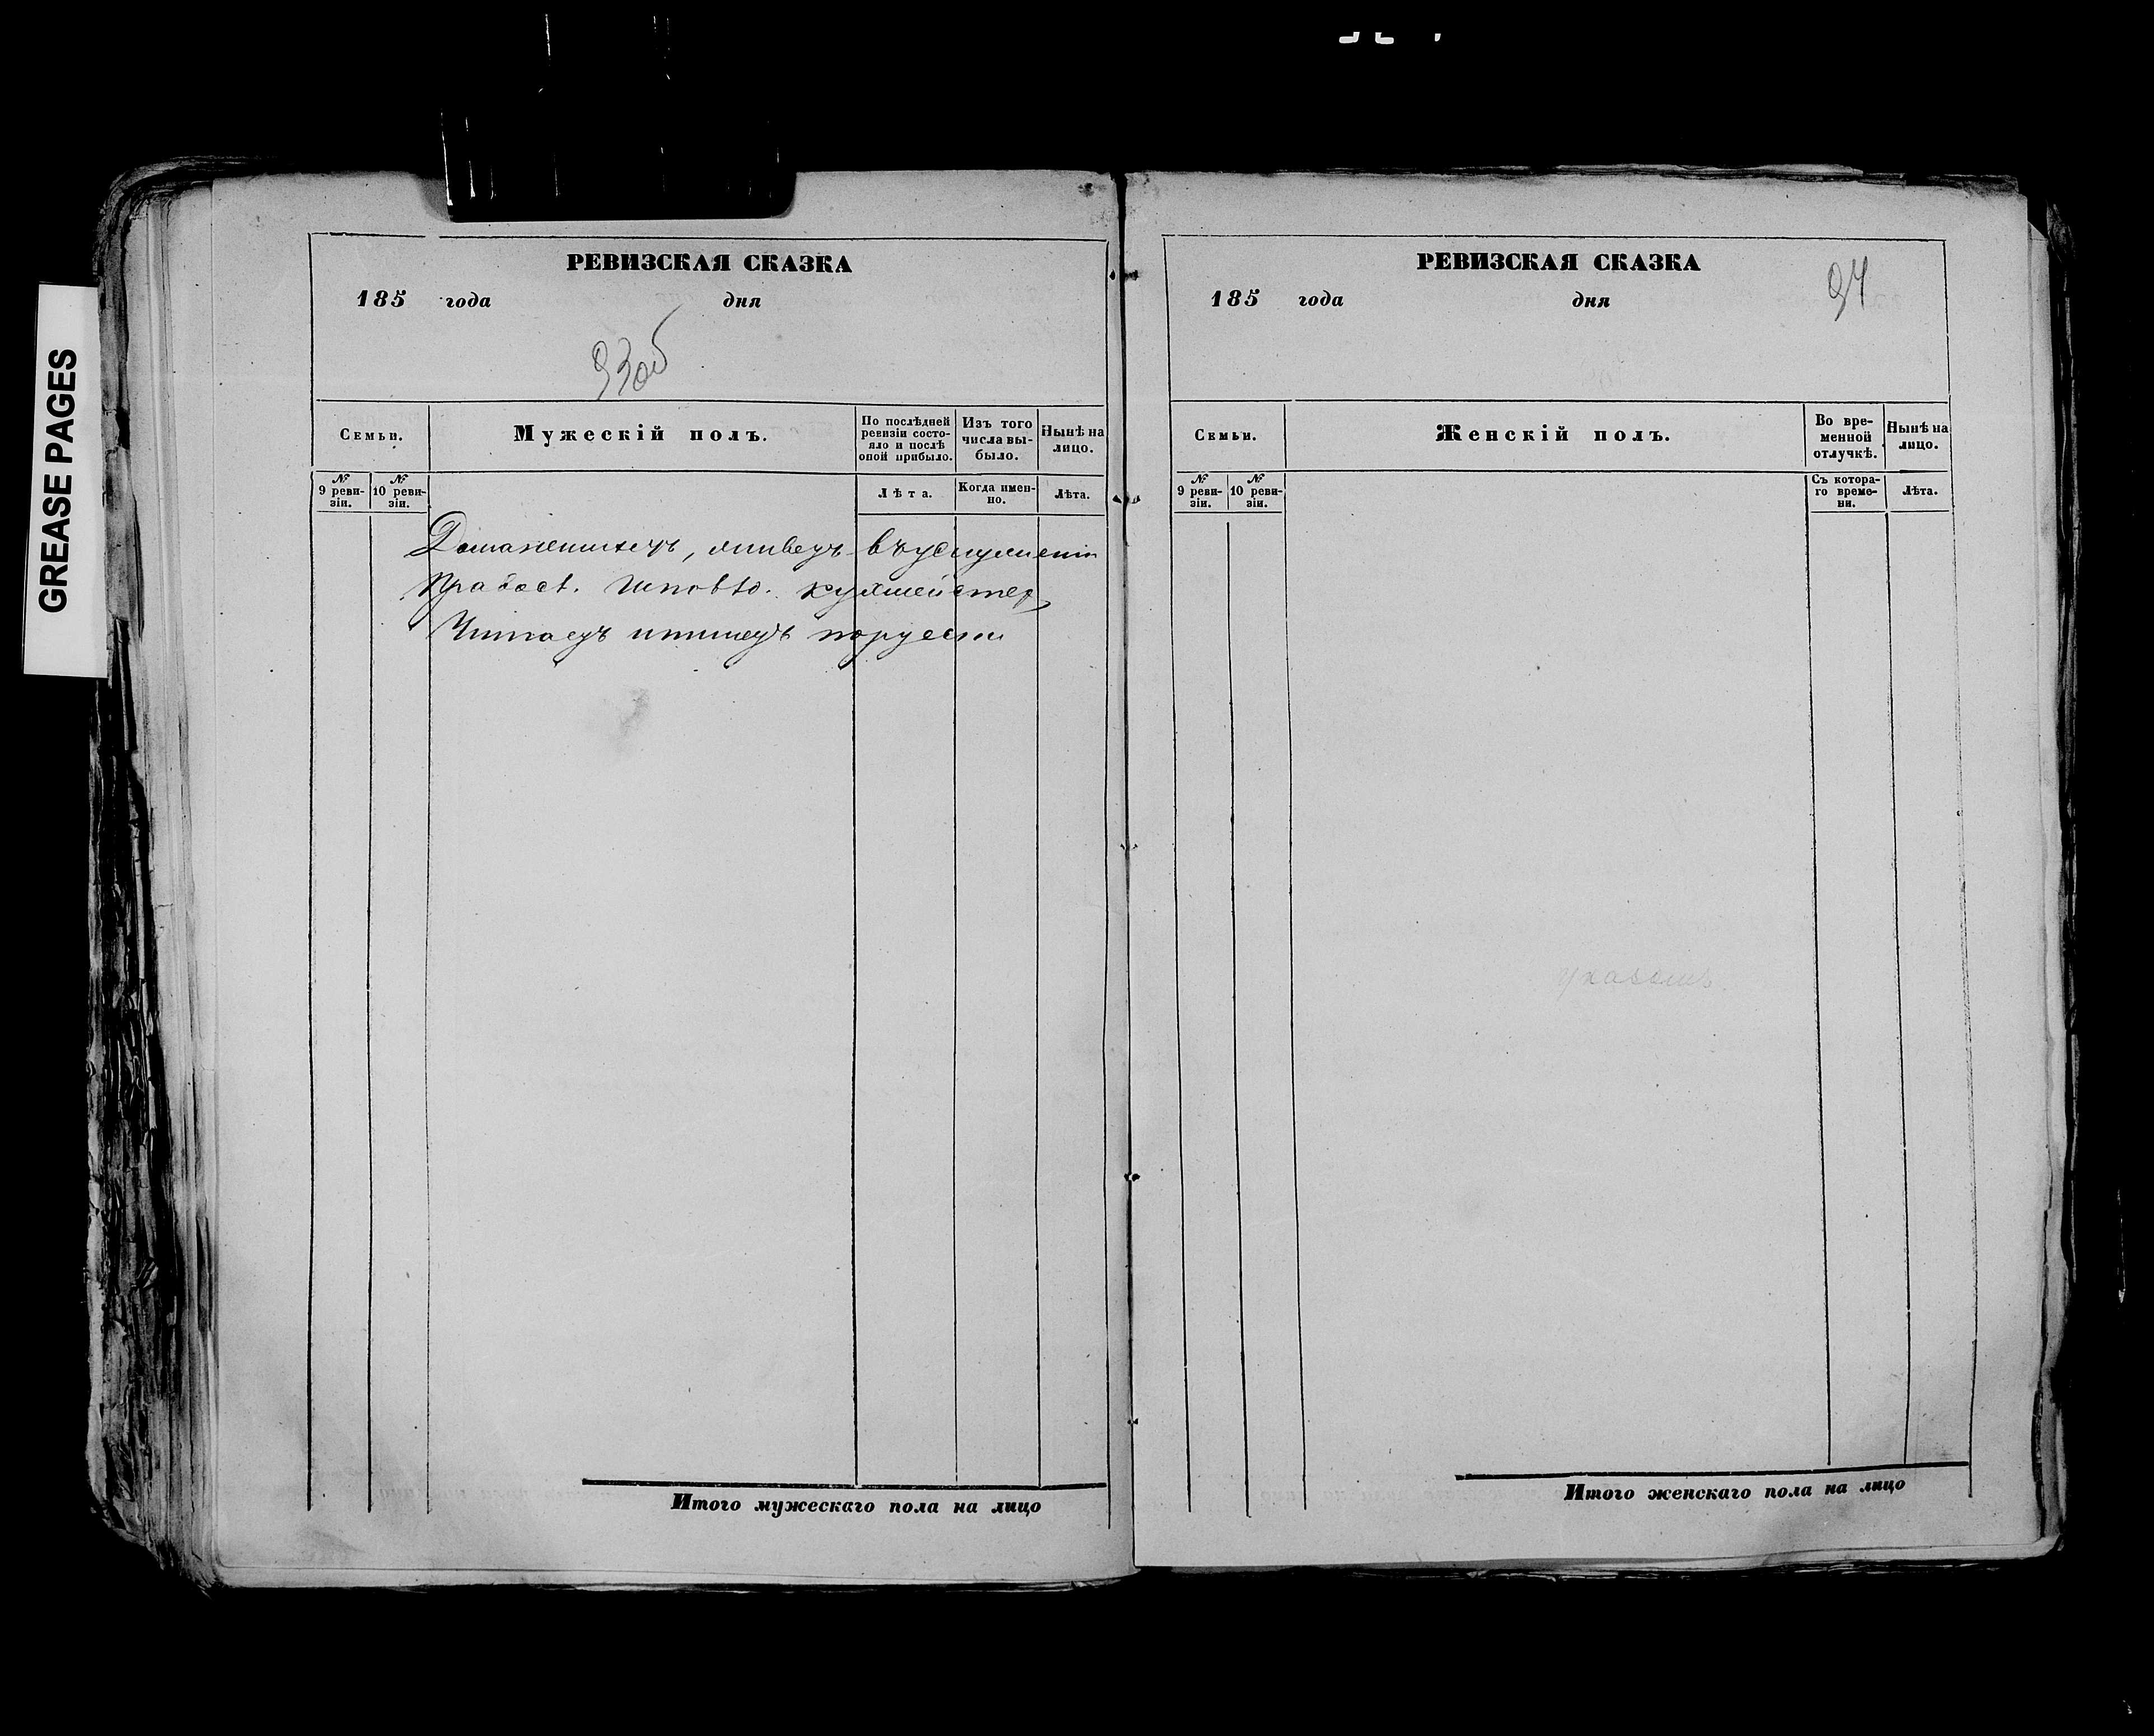 GREASE PAGES
РЕВИЗСКАЯ СКАЗКА
185 года дня
93об
Семьи.
Мужескій полъ.
По послѣдней ревизіи состояло и послѣ оной прибыло.
Изъ того числа выбыло.
Нынѣ на лицо.
№ 9 ревизіи.
№ 10 ревизіи.
Лѣта.
Когда именно.
Лѣта.
живетъ въ услуженіи
Правосл. кухмейстер
Читаетъ и пишетъ по руски
Итого мужескаго пола на лицо
РЕВИЗСКАЯ СКАЗКА
185 года дня
94
Семьи.
Женскій полъ.
Во временной отлучкѣ.
Нынѣ на лицо.
№ 9 ревизіи.
№ 10 ревизіи.
Съ котораго времени.
Лѣта.
Итого женскаго пола на лицо